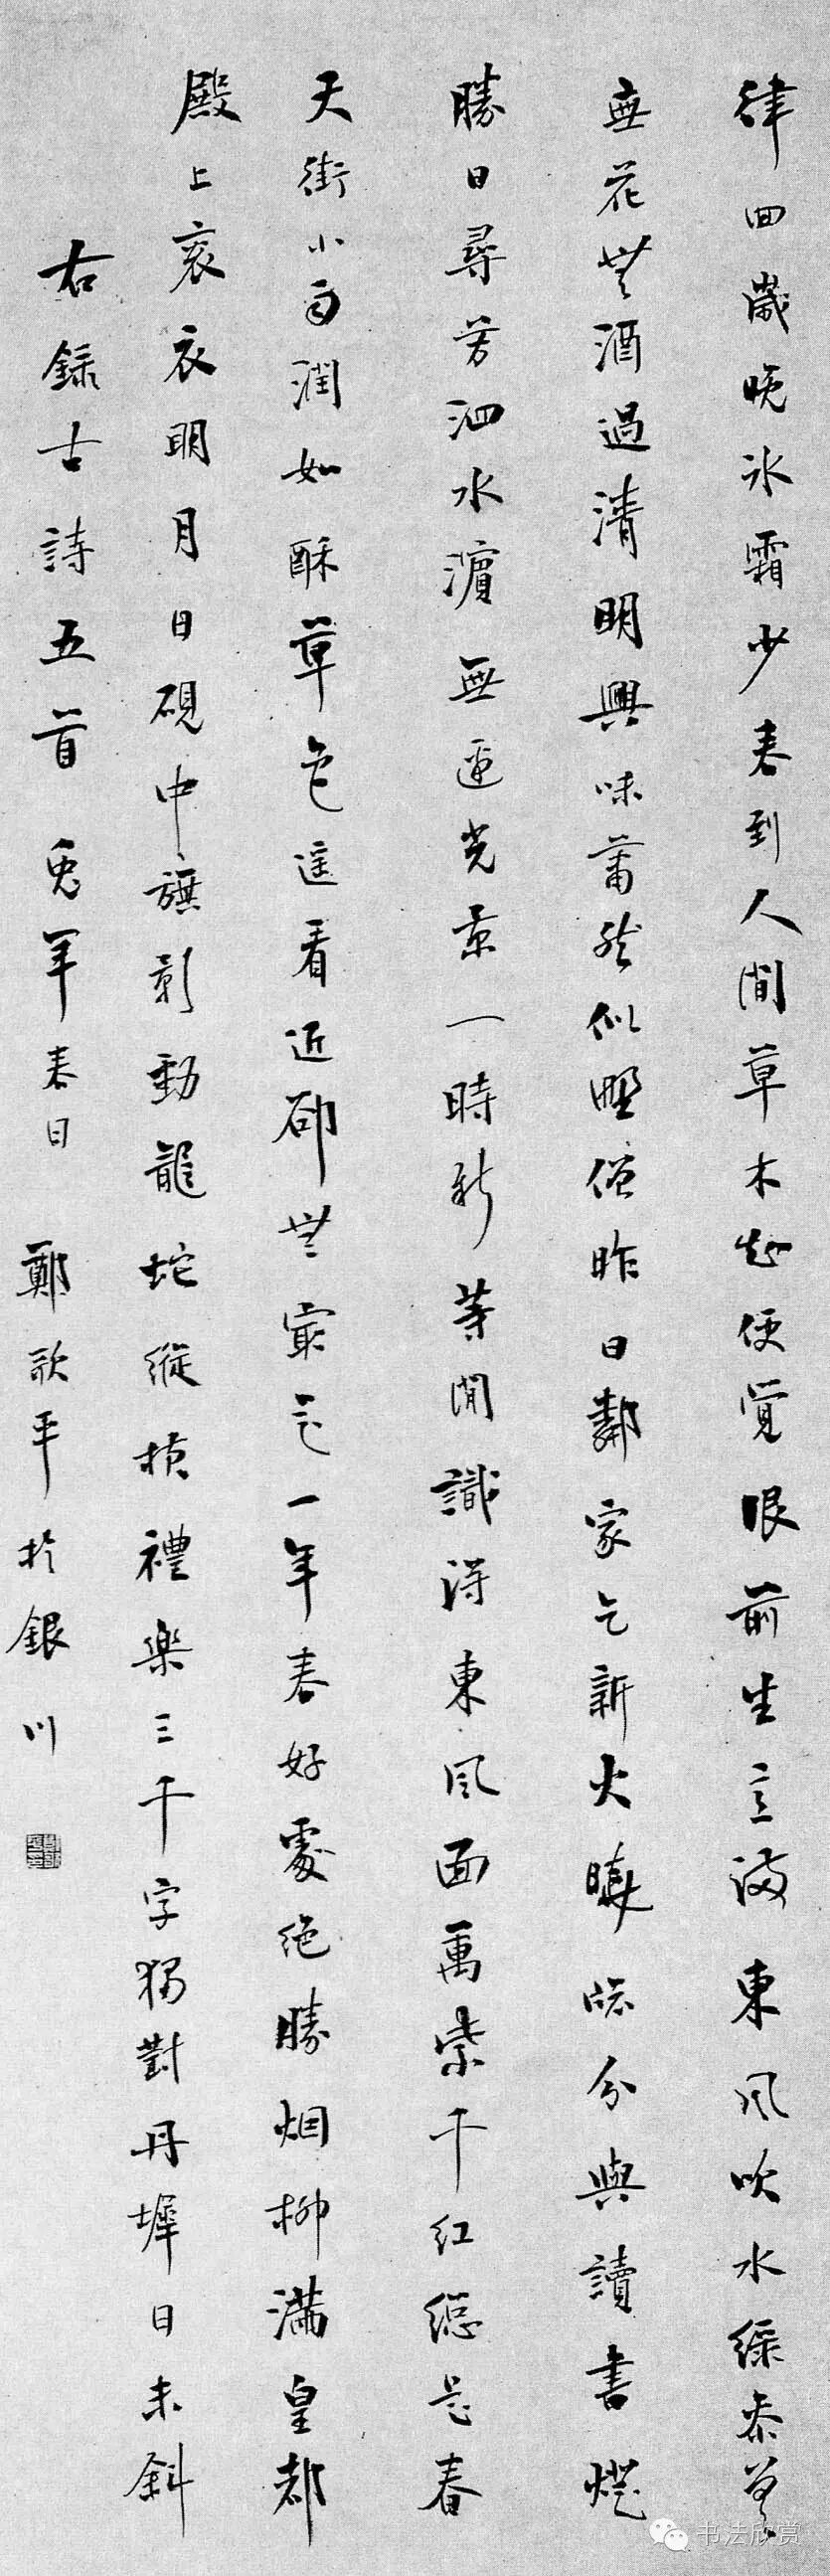 律回歲晚冰霜少春到人間草木知便覺眼前生意滿東風吹水綠參差
無花無酒過清明興味蕭然似野僧昨日鄰家乞新火曉牕分與讀書燈
勝日尋芳泗水濱無邊光景一時新等閒識得東風面萬紫千紅總是春
天街小雨潤如酥草色遙看近卻無最是一年春好處絕勝烟柳滿皇都
殿上袞衣明月日硯中旗影動龍蛇縱橫禮樂三千字獨對丹墀日未斜
右録古詩五首 兔年春日 鄭歌平於銀川
书法欣赏